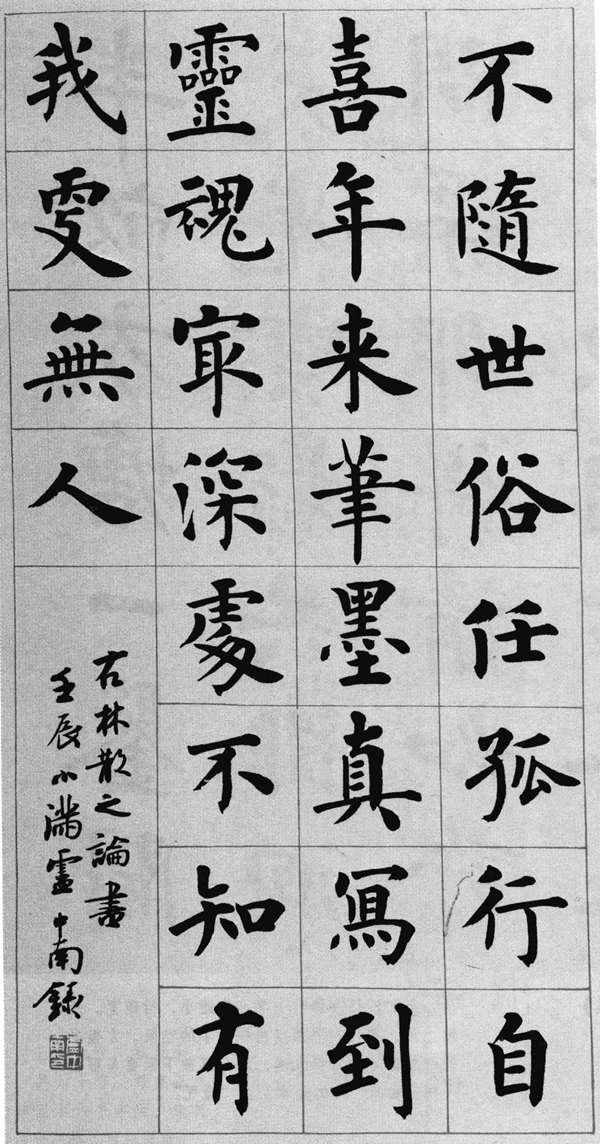 不隨世俗任孤行自
喜年来筆墨真寫到
靈魂㝡深處不知有
我更無人
右林散之論書
壬辰小滿盧中南録